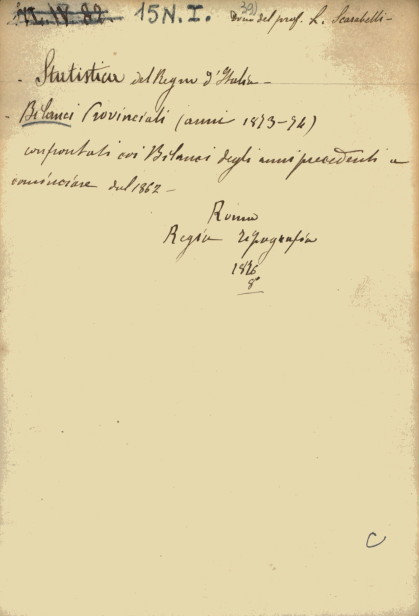 15 N. I. Dono del prof. L. Scarabelli -
- Statistica del Regno d'Italia -
- Bilanci Provinciali (anni 1873-74)
confrontati coi Bilanci degli anni precedenti a
cominciare dal 1862 -
Roma
Regia Tipografia
1876
8°
C